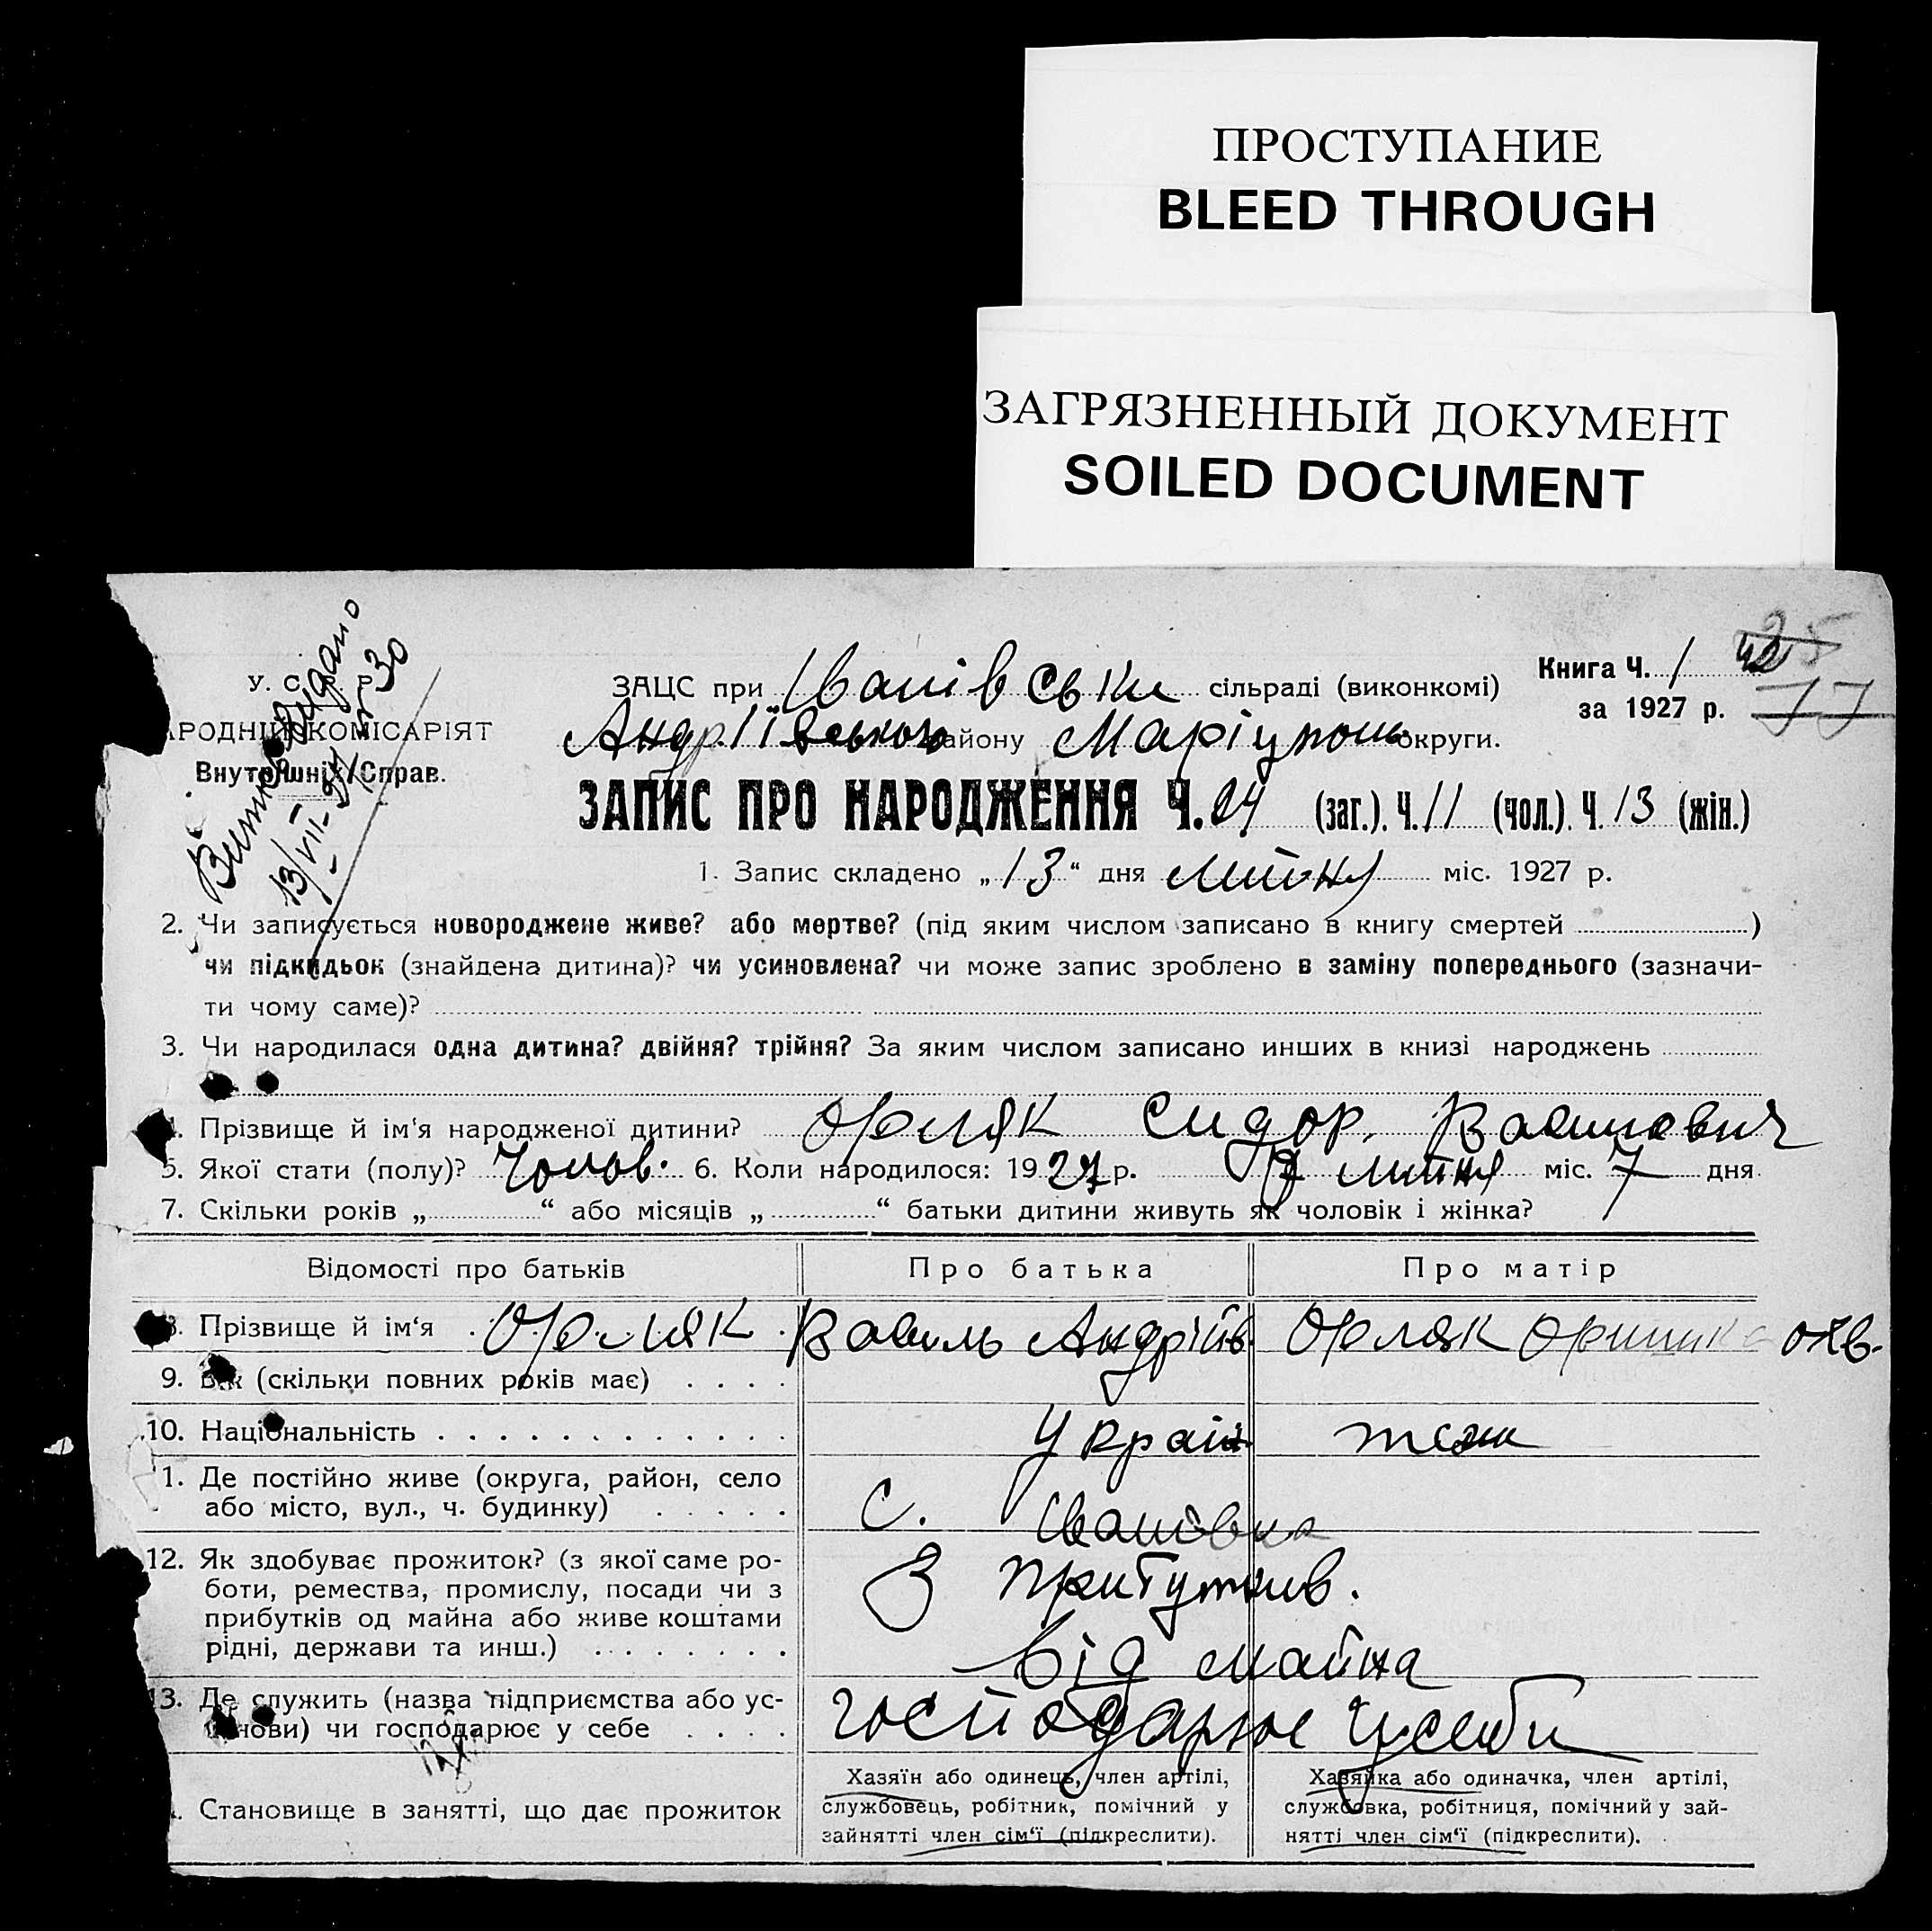 ПРОСТУПАНИЕ
BLEED THROUGH
ЗАГРЯЗНЕННЫЙ ДОКУМЕНТ
SOILED DOCUMENT
видано
30
У. С. Р Р
АРОДНІЙ КОМІСАРІЯТ
Внутрішніх Справ.
13/VII-
ЗАЦС при Іванівськи сільраді (виконкомі)
Книга Ч. 1
25
42
за 1927 р.
77
Андріївського району Маріупольс округи.
ЗАПИС ПРО НАРОДЖЕННЯ Ч. 24 (заг.). Ч. 11 (чол.). Ч. 13 (жін.)
1. Запис складено „13“ дня липня міс. 1927 р.
2. Чи записується новороджене живе? або мертве? (під яким числом записано в книгу смертей )
чи підкидьок (знайдена дитина)? чи усиновлена? чи може запис зроблено в заміну попереднього (зазначи-
ти чому саме)?
3. Чи народилася одна дитина? двійня? трійня? За яким числом записано инших в книзі народжень
4. Прізвище й ім'я народженої дитини? Орляк Сидор Васильович
5. Якої стати (полу)? Чолов. 6. Коли народилося: 1927 р. 7 липня міс. 7 дня
7. Скільки років „ “ або місяців „ “ батьки дитини живуть як чоловік і жінка?
Відомості про батьків Про батька Про матір
8. Прізвище й ім‘я Орляк Василь Андрійв. Орляк Оришка
9. Вік (скільки повних років має)
10. Національність Україн тож
11. Де постійно живе (округа, район, село
або місто, вул., ч. будинку) с. Івановка
12. Як здобуває прожиток? (з якої саме ро-
боти, ремества, промислу, посади чи з
прибутків од майна або живе коштами
рідні, держави та инш.)
З прибутків.
від майна
13. Де служить (назва підприємства або ус-
танови) чи господарює у себе
господарює у себе
Становище в занятті, що дає прожиток
Хазяїн або одинець, член артілі,
службовець, робітник, помічний у
зайнятті член сім‘ї (підкреслити).
Хазяйка або одиначка, член артілі,
службовка, робітниця, помічний у зай-
нятті член сім‘ї (підкреслити).